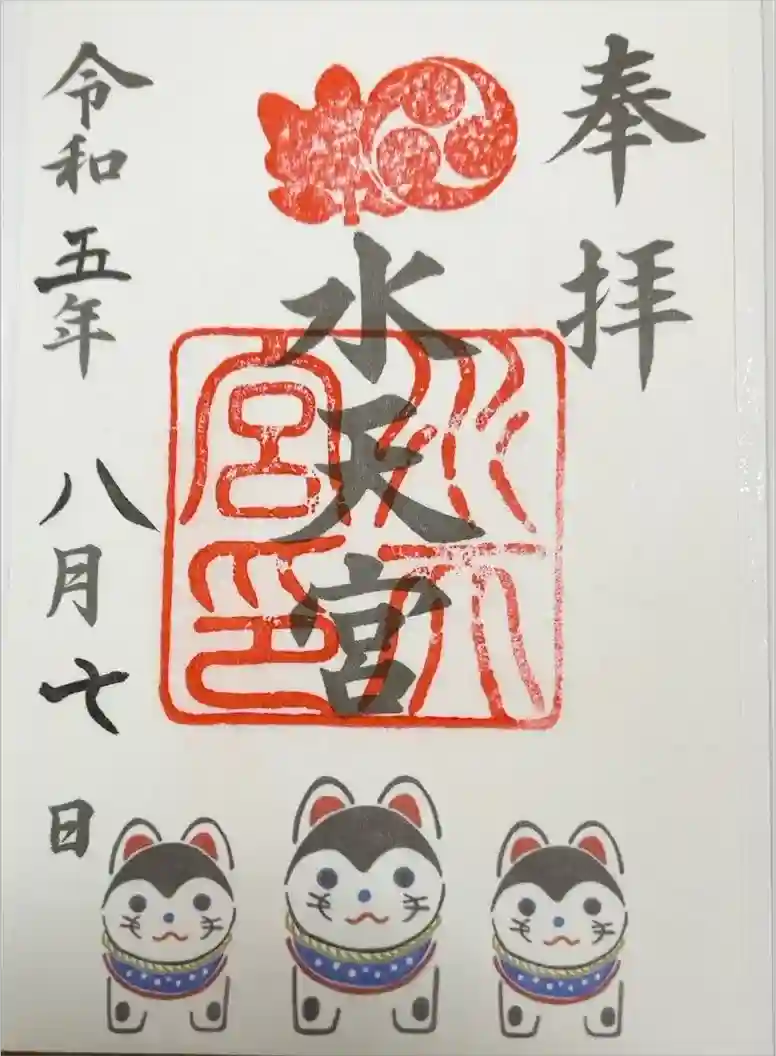 奉拝
水天宮
水天宮印
令和五年 八月七日